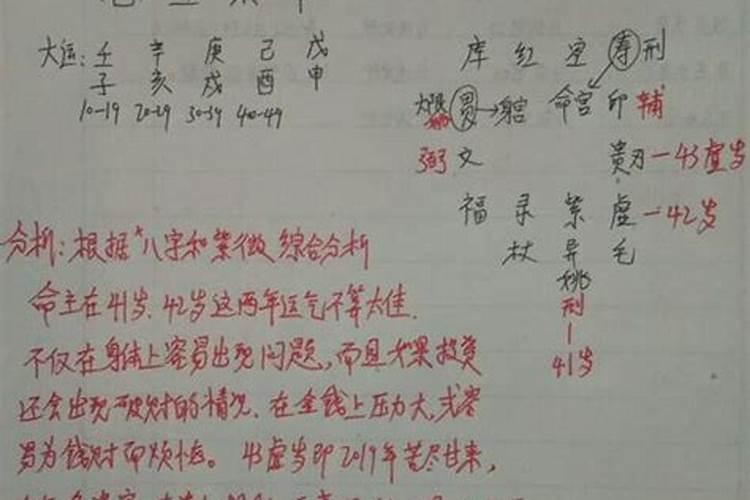 大运: 壬 辛 庚 己 戊
子 亥 戌 酉 申
10-19 20-29 30-39 40-49
库 红 空 寿 刑
大限 贯→ 身宫 命宫 印 辅
弼 文 贵刃—43虚岁
福 录 紫 虚—42岁
杖 异 毛
姚
刑
41岁
分析: 根据"八字和紫微综合分析
命主在41岁、42岁这两年运气不算太佳.
不仅在身体上容易出现问题, 而且如果投资
还会出现破财的情况. 在金钱上压力大, 或容
易为钱财而烦恼。 43虚岁即2019年苦尽甘来,